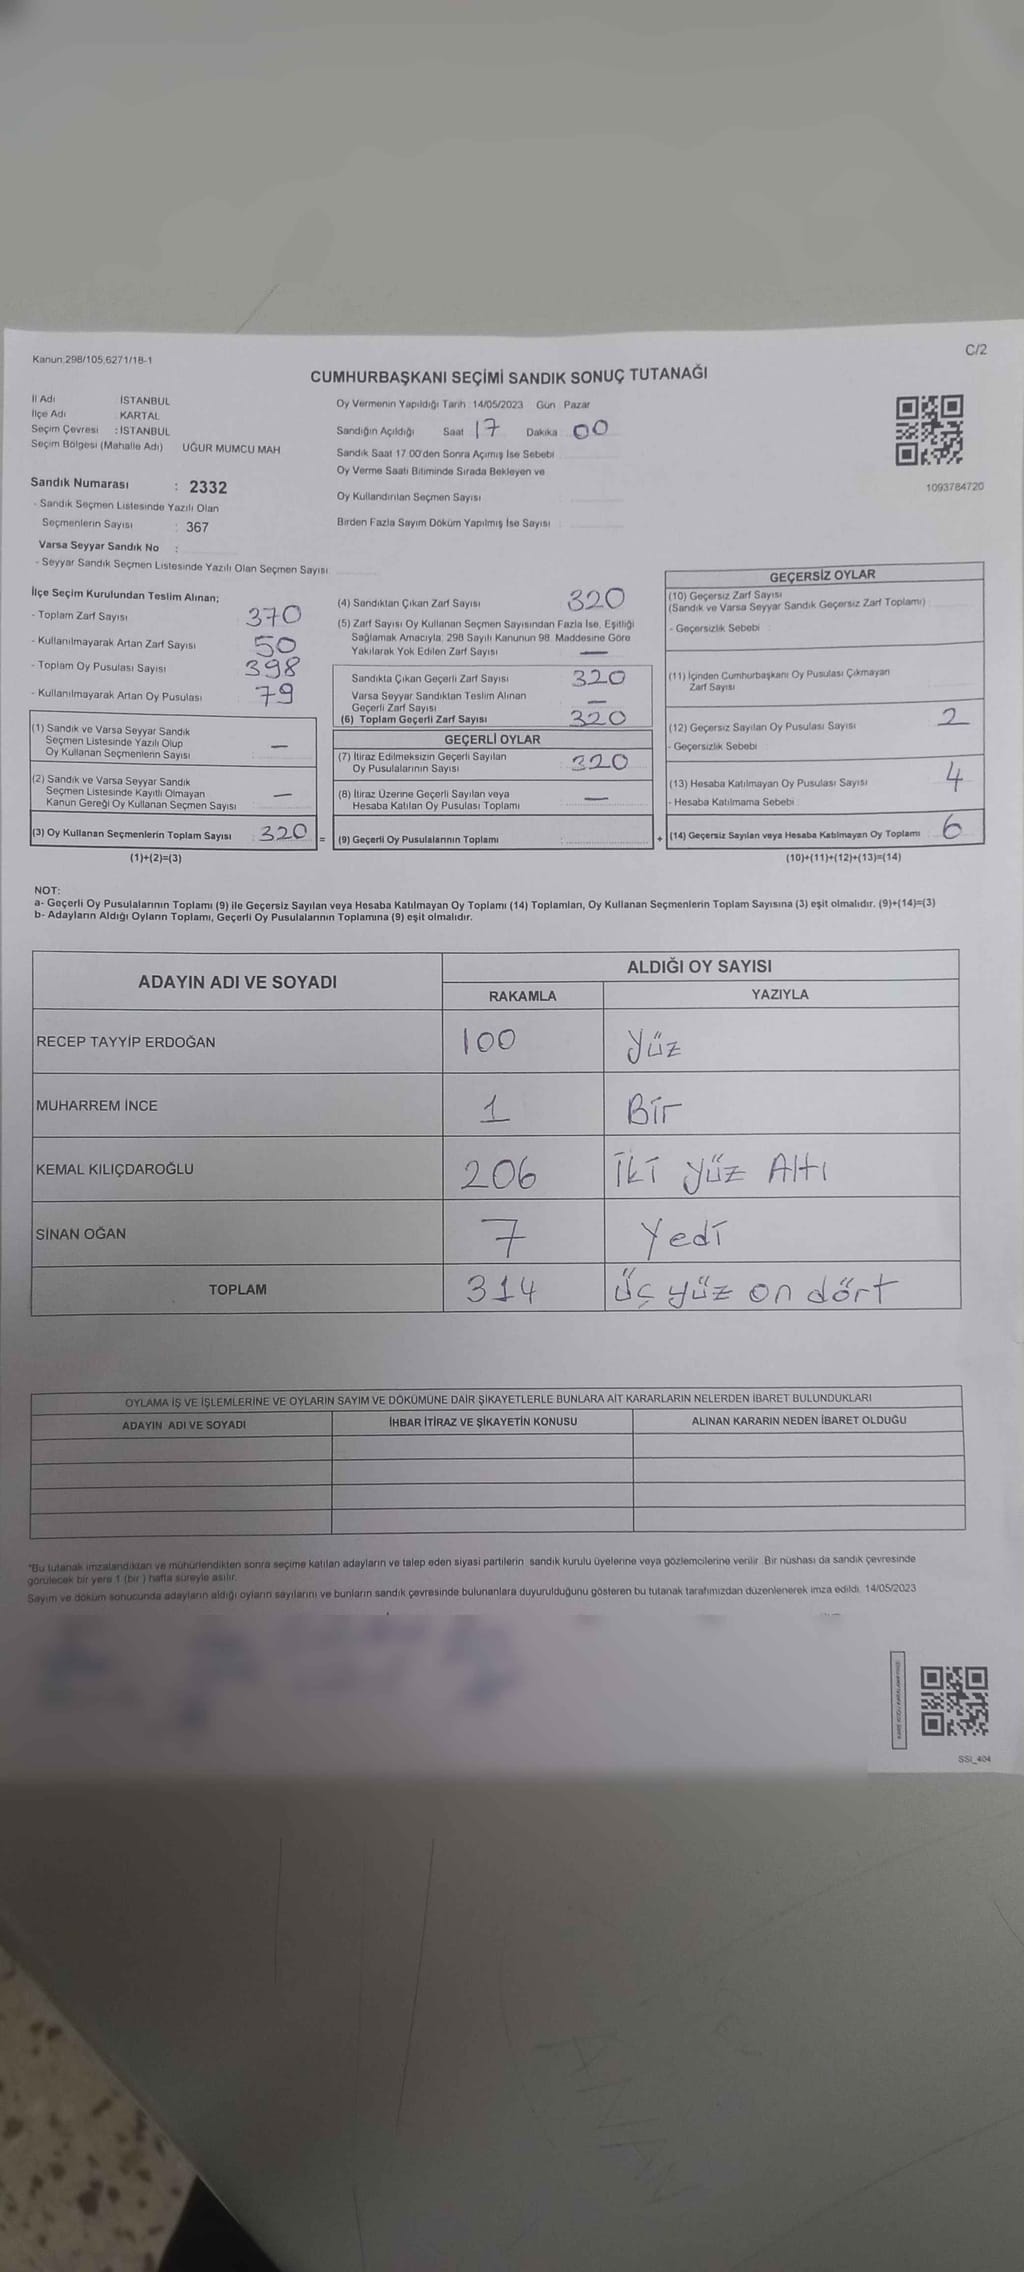 Kanun:298/105,6271/18-1
C/2
CUMHURBAŞKANI SEÇİMİ SANDIK SONUÇ TUTANAĞI
İl Adı İSTANBUL
İlçe Adı KARTAL
Seçim Çevresi : İSTANBUL
Seçim Bölgesi (Mahalle Adı) UĞUR MUMCU MAH
Sandık Numarası : 2332
- Sandık Seçmen Listesinde Yazılı Olan
Seçmenlerin Sayısı : 367
Varsa Seyyar Sandık No :
- Seyyar Sandık Seçmen Listesinde Yazılı Olan Seçmen Sayısı
Oy Vermenin Yapıldığı Tarih : 14/05/2023 Gün : Pazar
Sandığın Açıldığı Saat 17 Dakika 00
Sandık Saat 17:00'den Sonra Açımış İse Sebebi
Oy Verme Saati Bitiminde Sırada Bekleyen ve
Oy Kullandırılan Seçmen Sayısı
Birden Fazla Sayım Döküm Yapılmış İse Sayısı
1093784720
İlçe Seçim Kurulundan Teslim Alınan;
- Toplam Zarf Sayısı 370
- Kullanılmayarak Artan Zarf Sayısı 50
- Toplam Oy Pusulası Sayısı 398
- Kullanılmayarak Artan Oy Pusulası 79
(1) Sandık ve Varsa Seyyar Sandık
Seçmen Listesinde Yazılı Olup
Oy Kullanan Seçmenlerin Sayısı —
(2) Sandık ve Varsa Seyyar Sandık
Seçmen Listesinde Kayıtlı Olmayan
Kanun Gereği Oy Kullanan Seçmen Sayısı —
(3) Oy Kullanan Seçmenlerin Toplam Sayısı : 320 =
(1)+(2)=(3)
(4) Sandıktan Çıkan Zarf Sayısı 320
(5) Zarf Sayısı Oy Kullanan Seçmen Sayısından Fazla İse, Eşitliği
Sağlamak Amacıyla; 298 Sayılı Kanunun 98. Maddesine Göre
Yakılarak Yok Edilen Zarf Sayısı —
Sandıkta Çıkan Geçerli Zarf Sayısı 320
Varsa Seyyar Sandıktan Teslim Alınan
Geçerli Zarf Sayısı —
(6) Toplam Geçerli Zarf Sayısı 320
GEÇERLİ OYLAR
(7) İtiraz Edilmeksizin Geçerli Sayılan
Oy Pusulalarının Sayısı : 320
(8) İtiraz Üzerine Geçerli Sayılan veya
Hesaba Katılan Oy Pusulası Toplamı —
(9) Geçerli Oy Pusulalarının Toplamı : +
GEÇERSİZ OYLAR
(10) Geçersiz Zarf Sayısı
(Sandık ve Varsa Seyyar Sandık Geçersiz Zarf Toplamı)
- Geçersizlik Sebebi :
(11) İçinden Cumhurbaşkanı Oy Pusulası Çıkmayan
Zarf Sayısı
(12) Geçersiz Sayılan Oy Pusulası Sayısı 2
- Geçersizlik Sebebi
(13) Hesaba Katılmayan Oy Pusulası Sayısı 4
- Hesaba Katılmama Sebebi
(14) Geçersiz Sayılan veya Hesaba Katılmayan Oy Toplamı 6
(10)+(11)+(12)+(13)=(14)
NOT:
a- Geçerli Oy Pusulalarının Toplamı (9) ile Geçersiz Sayılan veya Hesaba Katılmayan Oy Toplamı (14) Toplamları, Oy Kullanan Seçmenlerin Toplam Sayısına (3) eşit olmalıdır. (9)+(14)=(3)
b- Adayların Aldığı Oyların Toplamı, Geçerli Oy Pusulalarının Toplamına (9) eşit olmalıdır.
ADAYIN ADI VE SOYADI ALDIĞI OY SAYISI
RAKAMLA YAZIYLA
RECEP TAYYİP ERDOĞAN 100 Yüz
MUHARREM İNCE 1 Bir
KEMAL KILIÇDAROĞLU 206 İki yüz Altı
SİNAN OĞAN 7 Yedi
TOPLAM 314 Üç yüz on dört
OYLAMA İŞ VE İŞLEMLERİNE VE OYLARIN SAYIM VE DÖKÜMÜNE DAİR ŞİKAYETLERLE BUNLARA AİT KARARLARIN NELERDEN İBARET BULUNDUKLARI
ADAYIN ADI VE SOYADI İHBAR İTİRAZ VE ŞİKAYETİN KONUSU ALINAN KARARIN NEDEN İBARET OLDUĞU
*Bu tutanak imzalandıktan ve mühürlendikten sonra seçime katılan adayların ve talep eden siyasi partilerin sandık kurulu üyelerine veya gözlemcilerine verilir. Bir nüshası da sandık çevresinde
görülecek bir yere 1 (bir) hafta süreyle asılır.
Sayım ve döküm sonucunda adayların aldığı oyların sayılarını ve bunların sandık çevresinde bulunanlara duyurulduğunu gösteren bu tutanak tarafımızdan düzenlenerek imza edildi. 14/05/2023
SSI_404